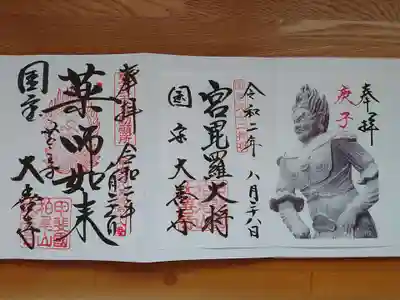 奉拝
庚子
令和二年 八月二十八日
宮毘羅大将
国宝 大善寺
奉拝
令和二年
薬師如来
国宝
大善寺
甲斐國
柏尾山